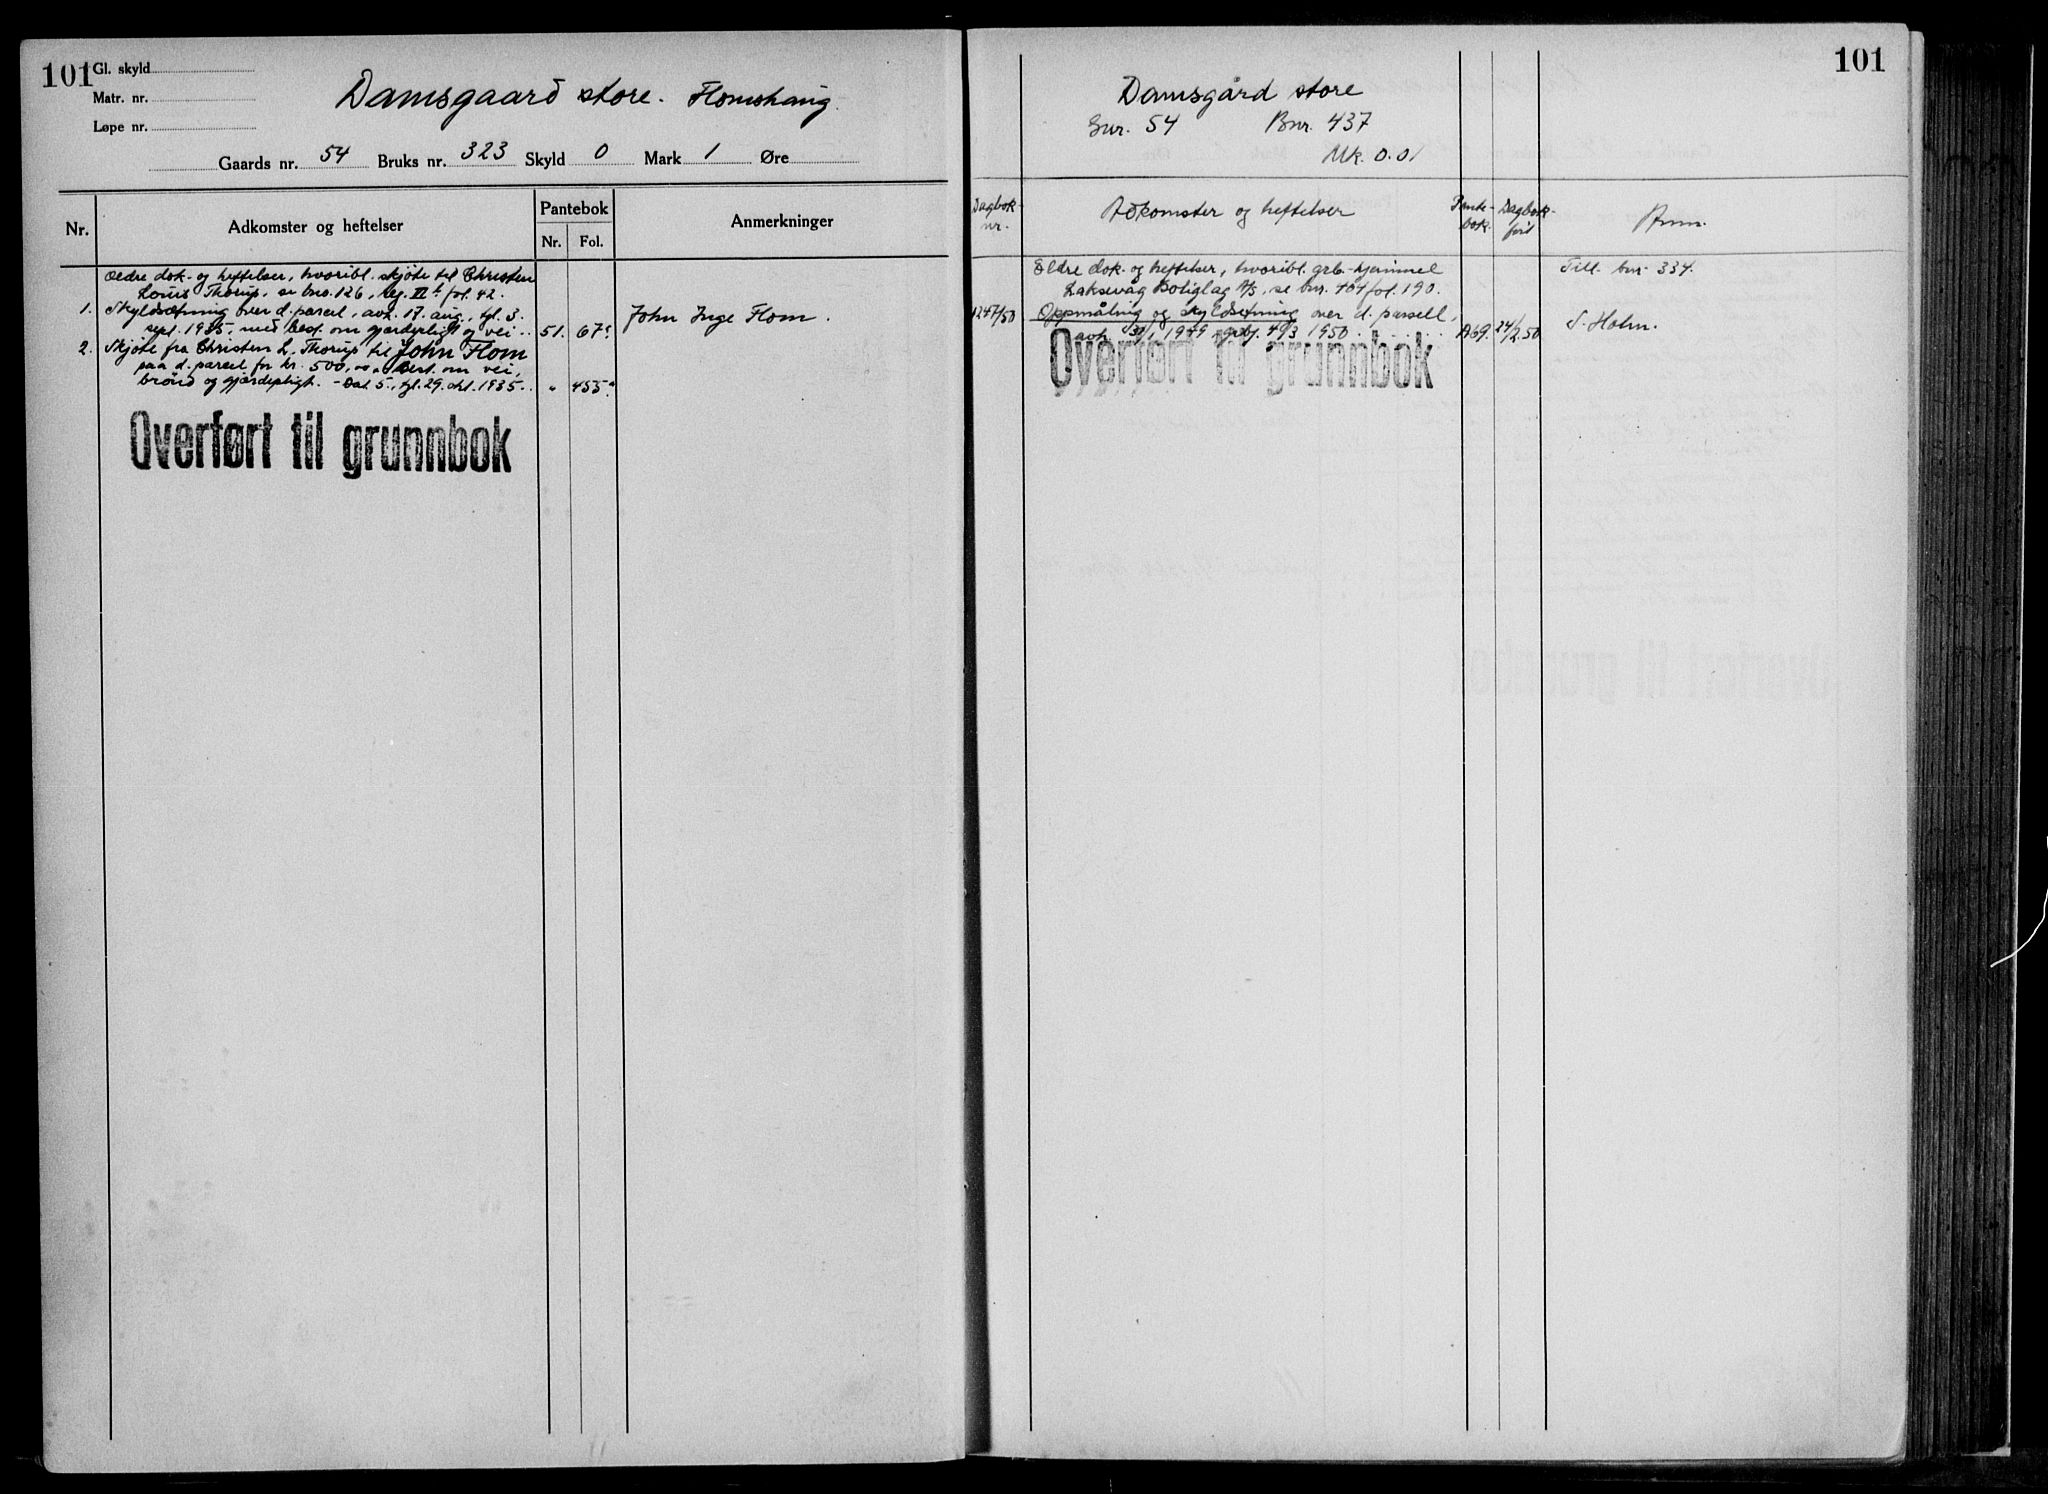 101
Gl. skyld
Matr. nr.
Løpe nr.
Damsgaard store. Flomshaug.
Gaards nr. 54 Bruks nr. 323 Skyld 0 Mark 1 Øre
Nr. Adkomster og heftelser Pantebok Anmerkninger
Nr. Fol.
Oeldre dok- og heftelser, hvoribl. skjøte til Christen
Louis Thorup, se bno. 126, reg. II fol. 42.
1. Skyldsetning over d. parcel, avh. 17. aug., tgl. 3.
sept. 1935, med best. om gjærdepligt og vei .. 51. 67
John Inge Flom.
2. Skjøte fra Christen L. Thorup til John Flom
paa d. parcel for kr. 500,00 best. om vei,
brønd og gjærdepligt. - Dat. 5., tgl. 29. okt. 1935.. " 455
Overført til grunnbok
101
Damsgård store
Gnr. 54 Bnr. 437
Mk. 0.01
Dagbok-nr. Adkomster og heftelser Pante-bok. Dagbok-ført Anm.
Eldre dok- og heftelser, hvoribl. grb.-hjemmel
Laksevåg Boliglag A/S, se bnr. 404 fol. 190.
Till. bnr. 334.
1247/50 Oppmåling og skyldsetning over d. parsell,
avh. 30/1 1949 4/3 1950 A69. 24/2.50
S. Holm.
Overført til grunnbok